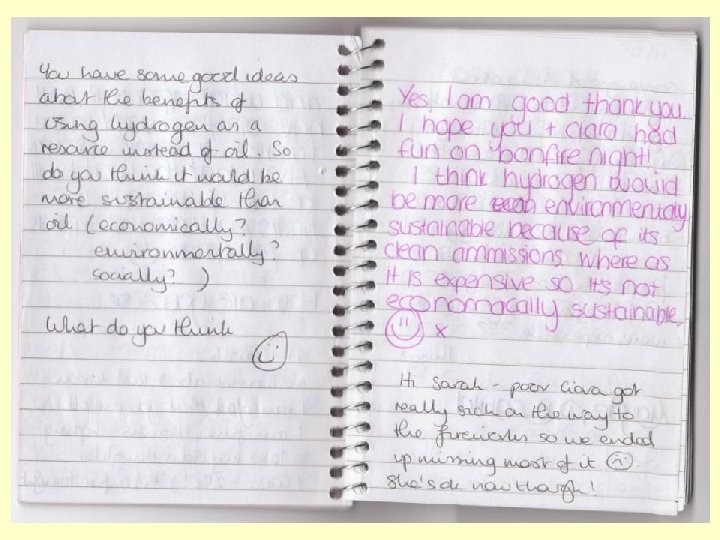 You have some good ideas
about the benefits of
using hydrogen as a
resource instead of oil. So
do you think it would be
more sustainable than
oil (economically?
environmentally?
socially?)
What do you think
Yes, I am good thank you.
I hope you + ciara had
fun on bonfire night!
I think hydrogen would
be more environmentaly
sustainable because of its
clean ammissions where as
it is expensive so its not
economacally sustainable.
x
Hi Sarah - poor Ciara got
really sick on the way to
the fireworks so we ended
up missing most of it
She's ok now though!